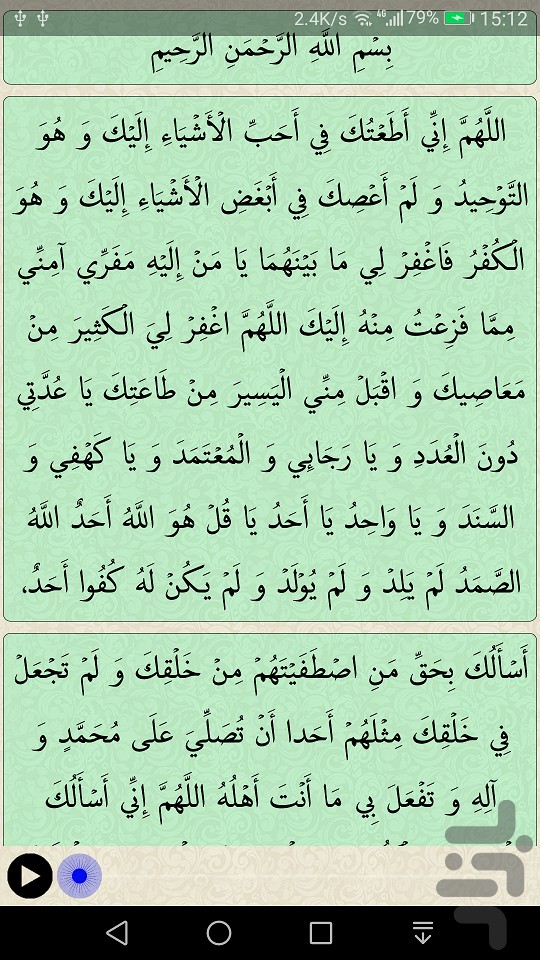 2.4K/s 4G 79% 15:12
بِسْمِ اللَّهِ الرَّحْمَنِ الرَّحِيمِ
اللَّهُمَّ إِنِّي أَطَعْتُكَ فِي أَحَبِّ الْأَشْيَاءِ إِلَيْكَ وَ هُوَ
التَّوْحِيدُ وَ لَمْ أَعْصِكَ فِي أَبْغَضِ الْأَشْيَاءِ إِلَيْكَ وَ هُوَ
الْكُفْرُ فَاغْفِرْ لِي مَا بَيْنَهُمَا يَا مَنْ إِلَيْهِ مَفَرِّي آمِنِّي
مِمَّا فَزِعْتُ مِنْهُ إِلَيْكَ اللَّهُمَّ اغْفِرْ لِيَ الْكَثِيرَ مِنْ
مَعَاصِيكَ وَ اقْبَلْ مِنِّي الْيَسِيرَ مِنْ طَاعَتِكَ يَا عُدَّتِي
دُونَ الْعُدَدِ وَ يَا رَجَائِي وَ الْمُعْتَمَدَ وَ يَا كَهْفِي وَ
السَّنَدَ وَ يَا وَاحِدُ يَا أَحَدُ يَا قُلْ هُوَ اللَّهُ أَحَدٌ اللَّهُ
الصَّمَدُ لَمْ يَلِدْ وَ لَمْ يُولَدْ وَ لَمْ يَكُنْ لَهُ كُفُوا أَحَدٌ،
أَسْأَلُكَ بِحَقِّ مَنِ اصْطَفَيْتَهُمْ مِنْ خَلْقِكَ وَ لَمْ تَجْعَلْ
فِي خَلْقِكَ مِثْلَهُمْ أَحَدا أَنْ تُصَلِّيَ عَلَى مُحَمَّدٍ وَ
آلِهِ وَ تَفْعَلَ بِي مَا أَنْتَ أَهْلُهُ اللَّهُمَّ إِنِّي أَسْأَلُكَ